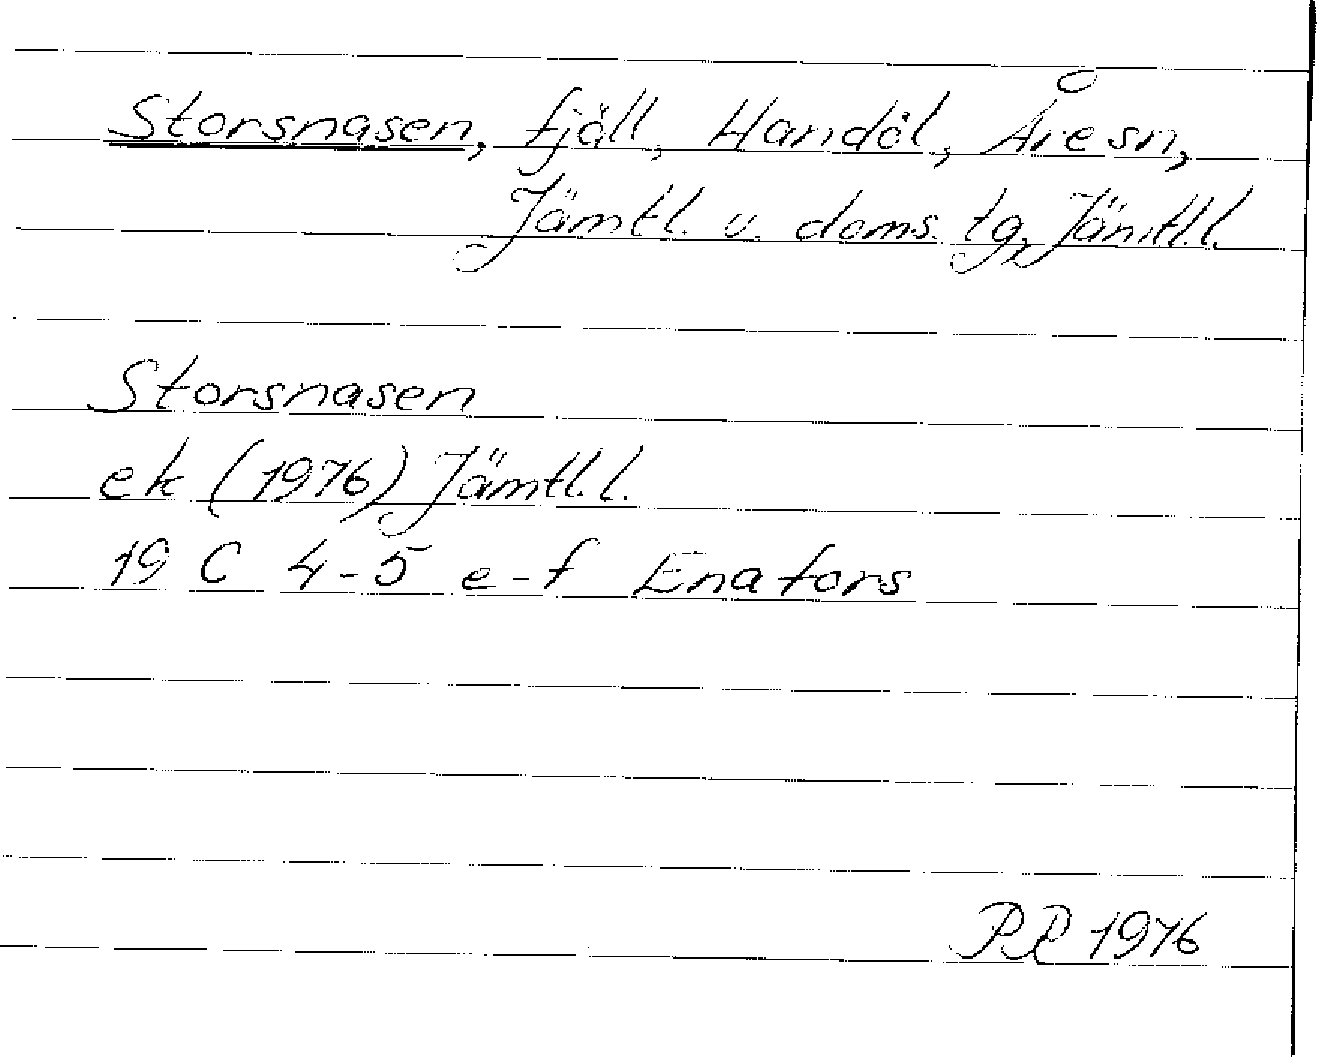 Storsnasen, fjäll, Handöl, Åre sn,
Jämtl. v. doms. tg, Jämtl.l.
Storsnasen
ek (1976) Jämtl.l.
19 C 4-5 e-f Enafors
PP 1976